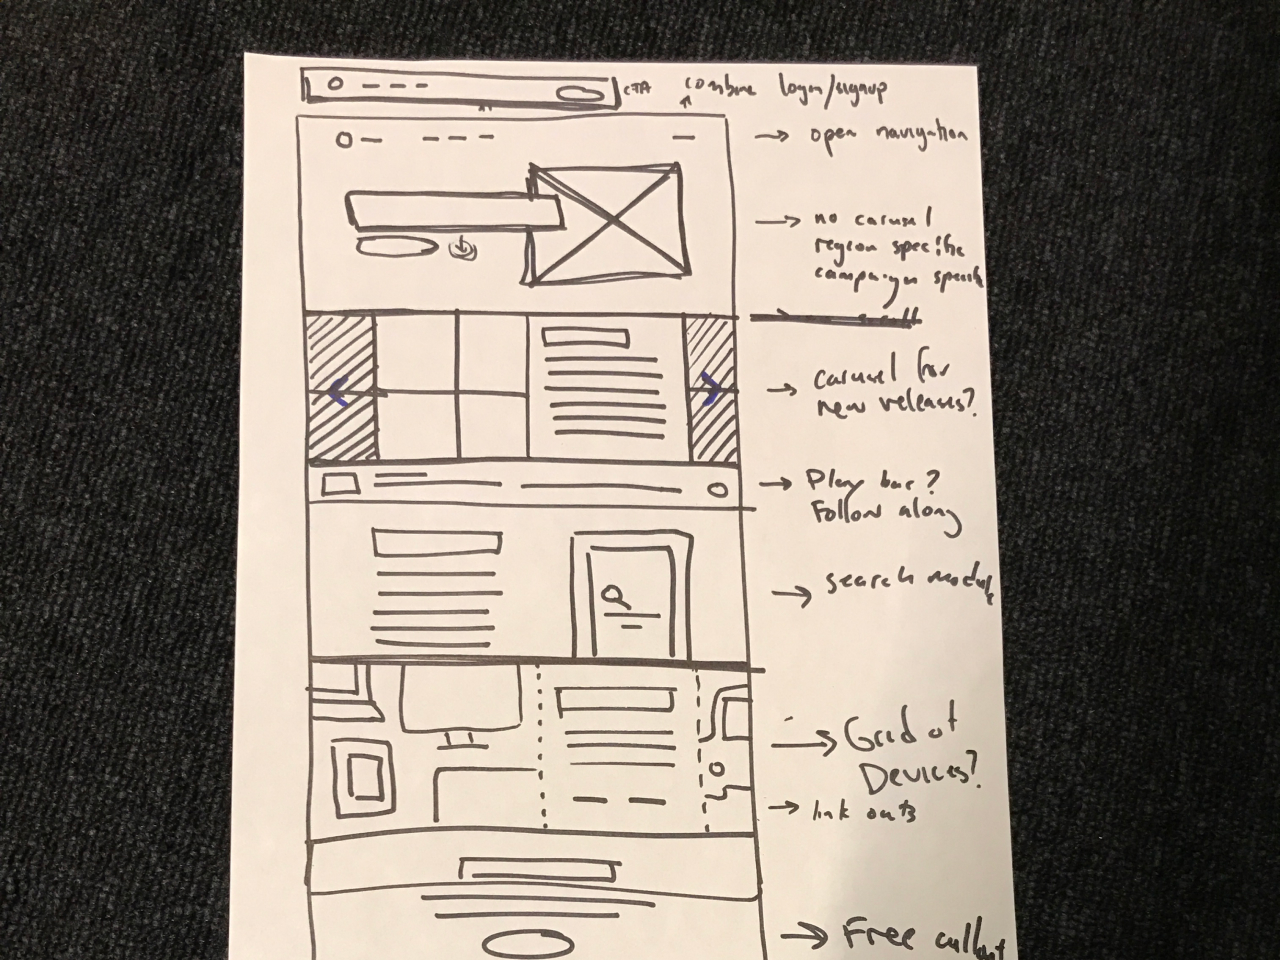 CTA combine login/signup
open navigation
no carusel
region specific
campaign
carusel for
new releases?
Play bar?
Follow along
search module
Grid of
Devices?
link outs
Free callout